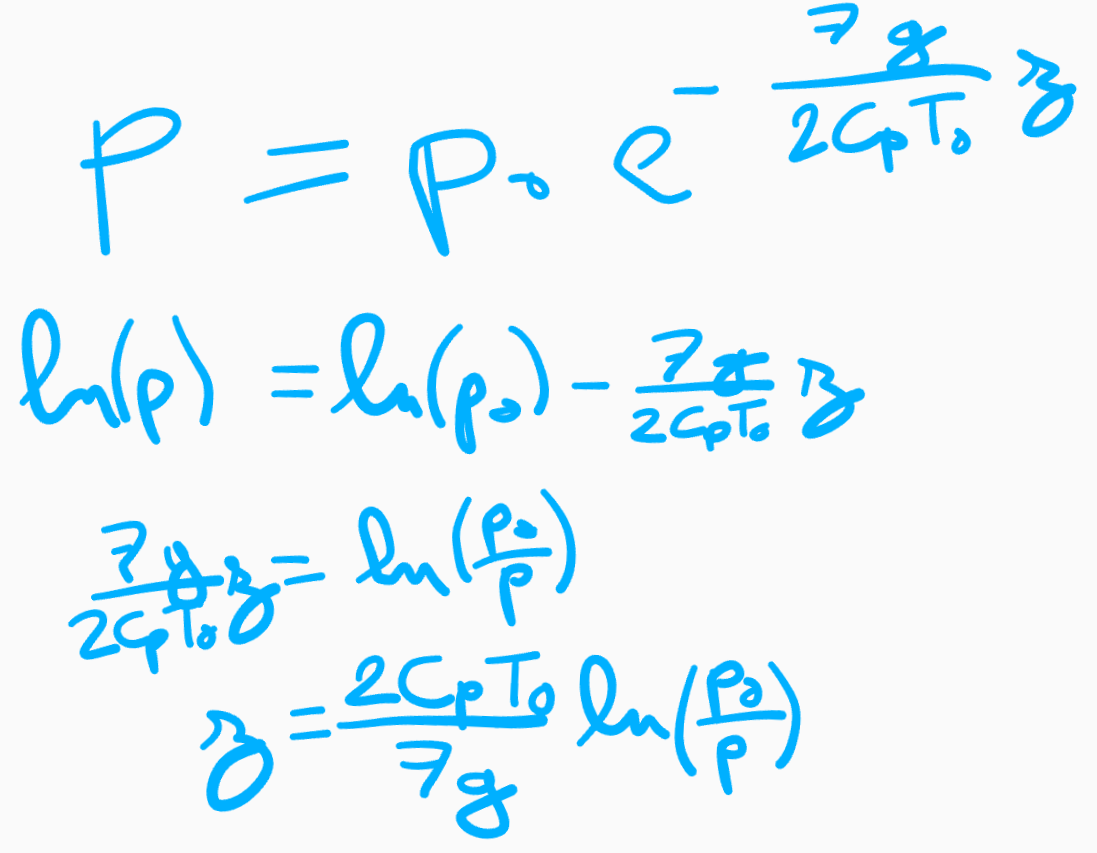 p = p₀ e^{- \frac{7g}{2C_pT_0} z}
ln(p) = ln(p₀) - \frac{7g}{2C_pT_0} z
\frac{7g}{2C_pT_0} z = ln(\frac{p_0}{p})
z = \frac{2C_pT_0}{7g} ln(\frac{p_0}{p})